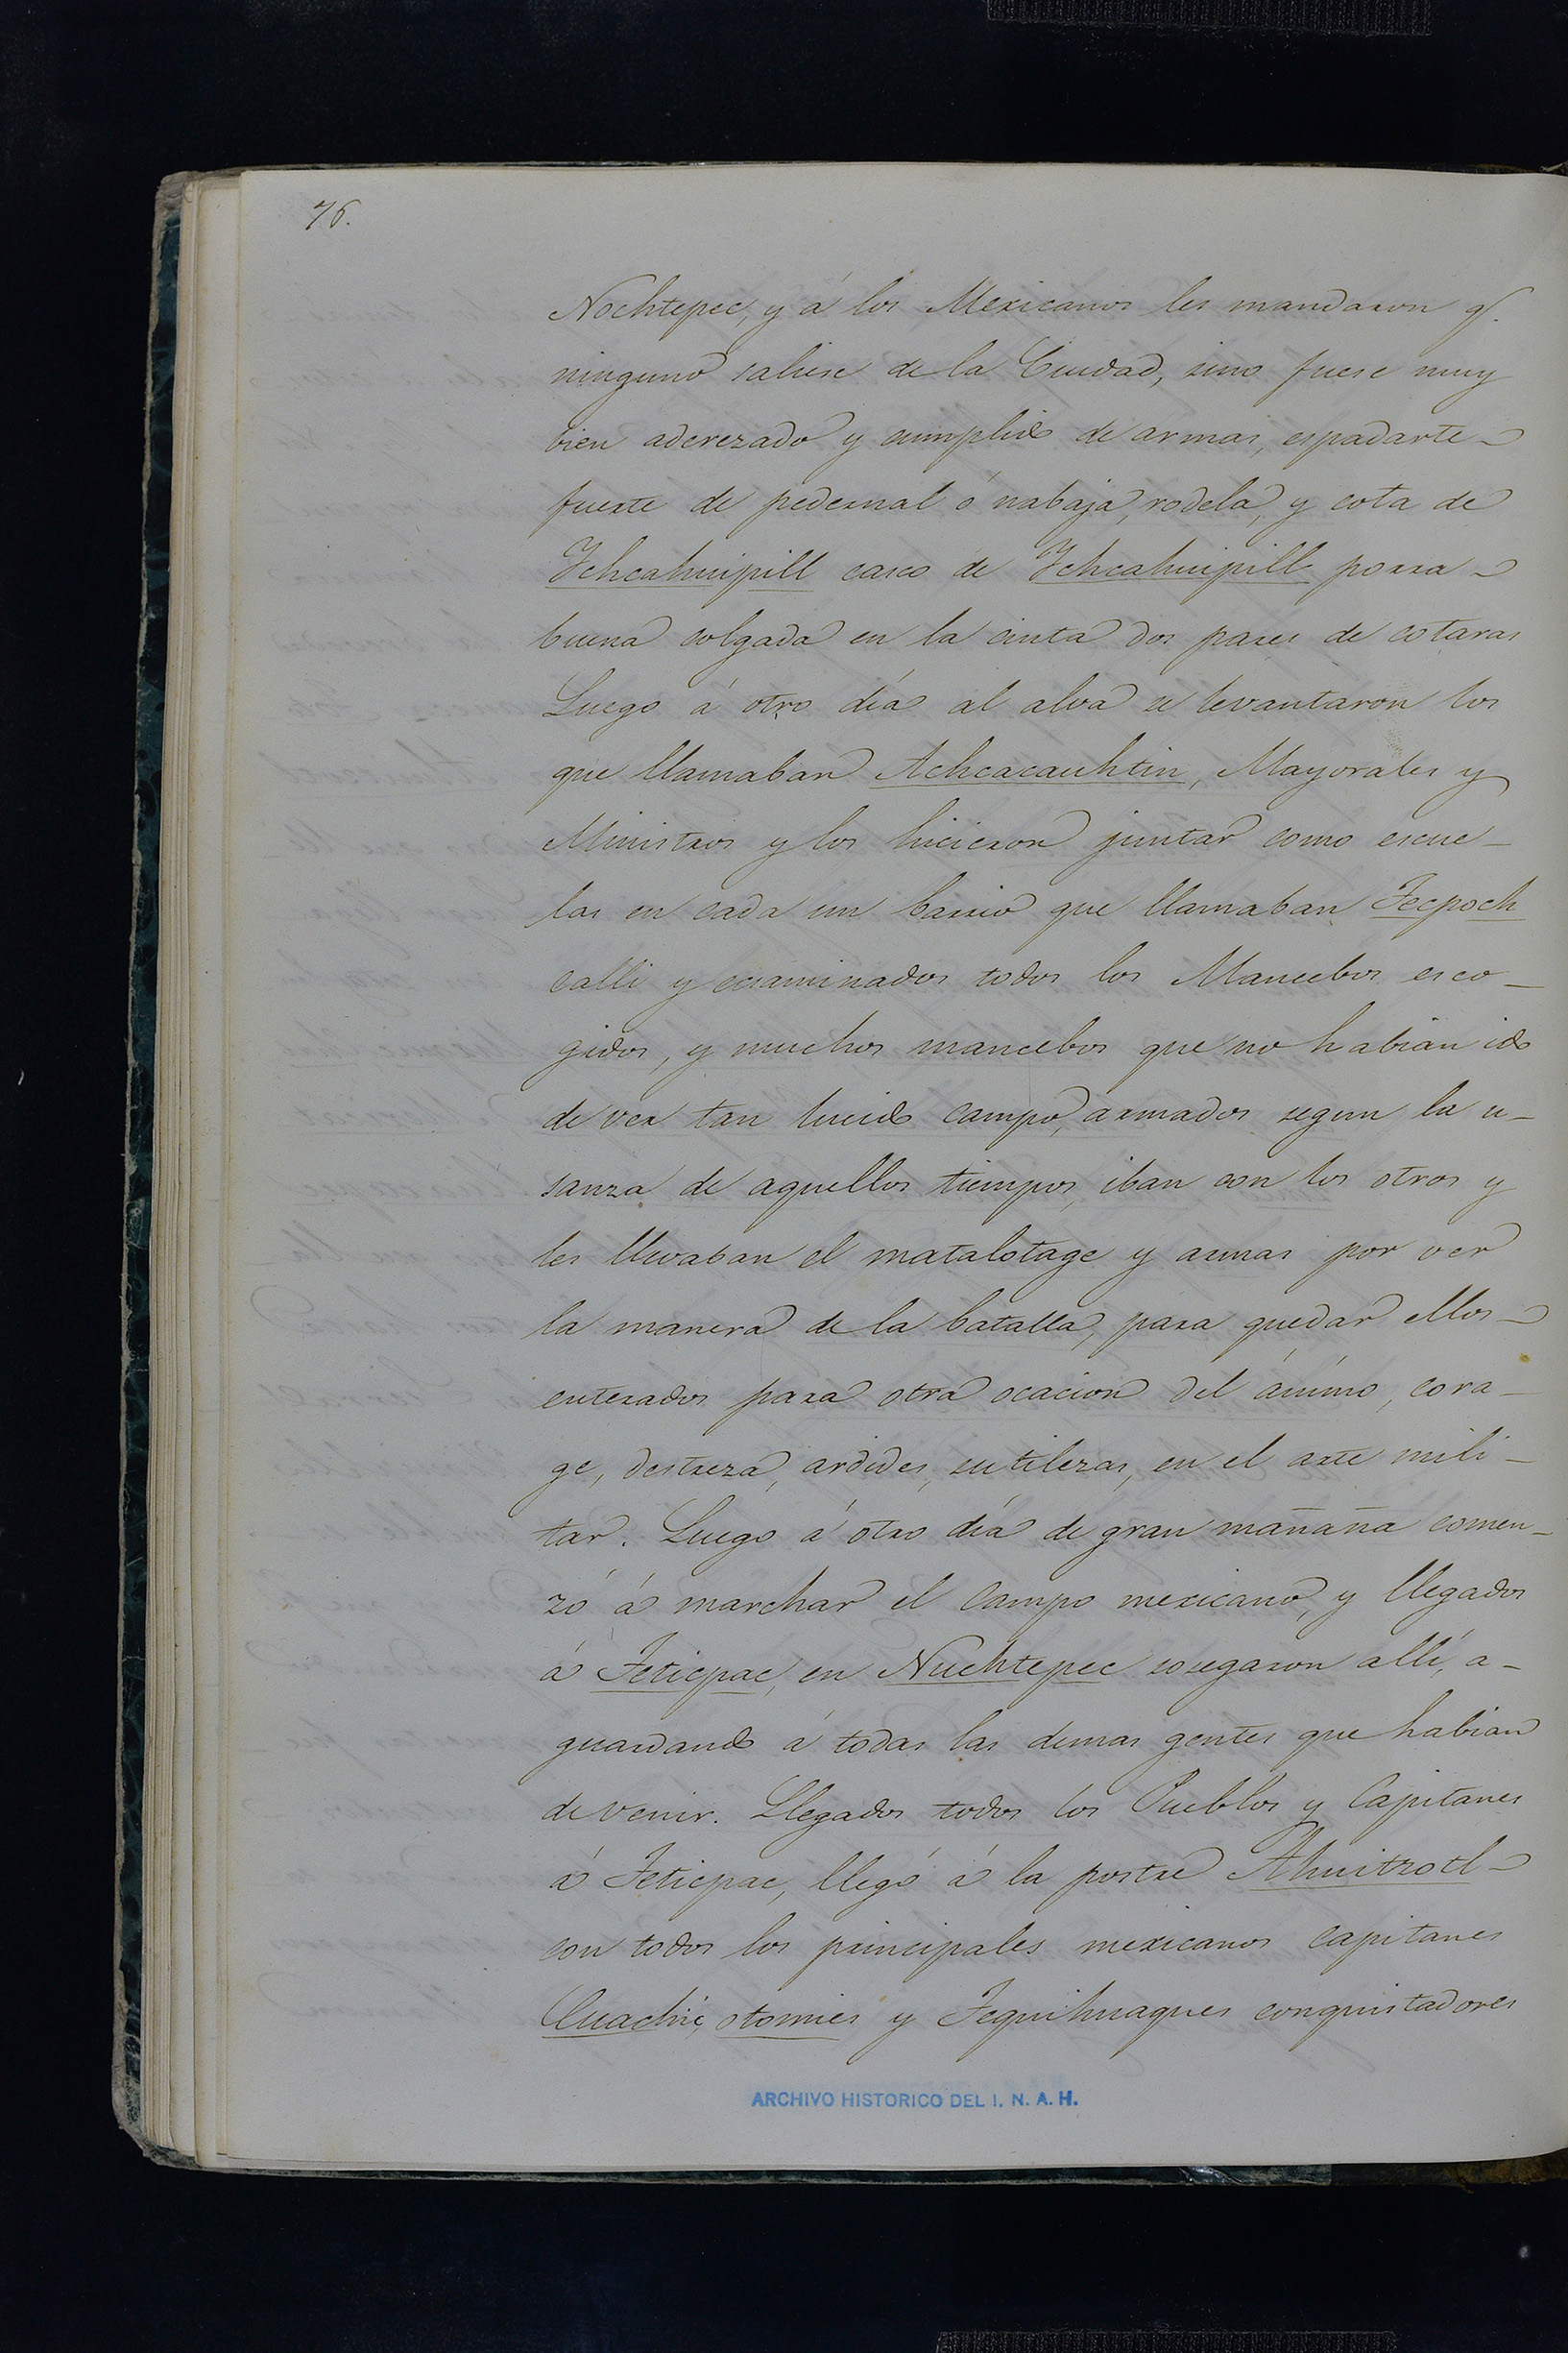 76.
Nochtepec, y á los Mexicanos les mandaron q.
ninguno saliese de la Ciudad, sino fuese muy
bien aderezado y cumplido de armas, espadarte
fuerte de pedernal ó nabaja, rodela, y cota de
Ychcahuipill casco de Ychcahuipill porra
buena colgada en la cinta dos pares de cotaras
Luego á otro día al alva se levantaron los
que llamaban Achcacauhtin, Mayorales y
Ministros y los hicieron juntar como escue-
las en cada un barrio que llamaban Tecpoch
calli y ecsaminados todos los Mancebos esco-
gidos, y muchos mancebos que no habian ido
de ver tan lucido campo, armados segun la u-
sanza de aquellos tiempos, iban con los otros y
les llevaban el matalotage y armas por ver
la manera de la batalla, para quedar ellos
enterados para otra ocacion del ánimo, cora-
ge, destreza, ardides, sutilezas, en el arte mili-
tar. Luego á otro día de gran mañana comen-
zó á marchar el campo mexicano, y llegados
á Teticpac, en Nuchtepec sosegaron allí, a-
guardando á todas las demas gentes que habian
de venir. Llegados todos los Pueblos y Capitanes
á Teticpac, llegó á la postre Ahuitzotl
con todos los principales mexicanos capitanes
Cuachic, otomies y Tequihuaques conquistadores
ARCHIVO HISTORICO DEL I. N. A. H.